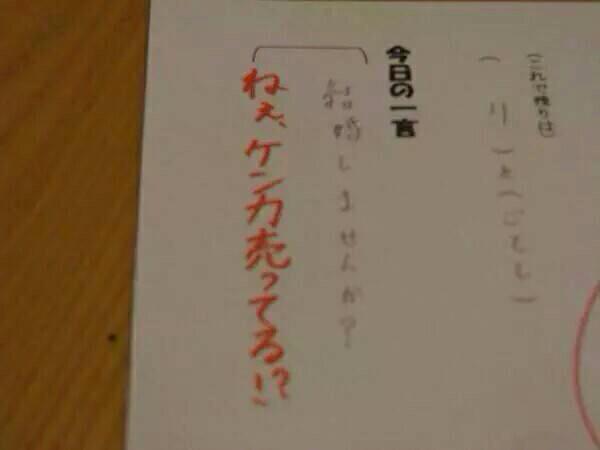 (これで残りは
( り )と(ともし)
今日の一言
結婚しませんか?
ねぇ、ケンカ売ってる!?